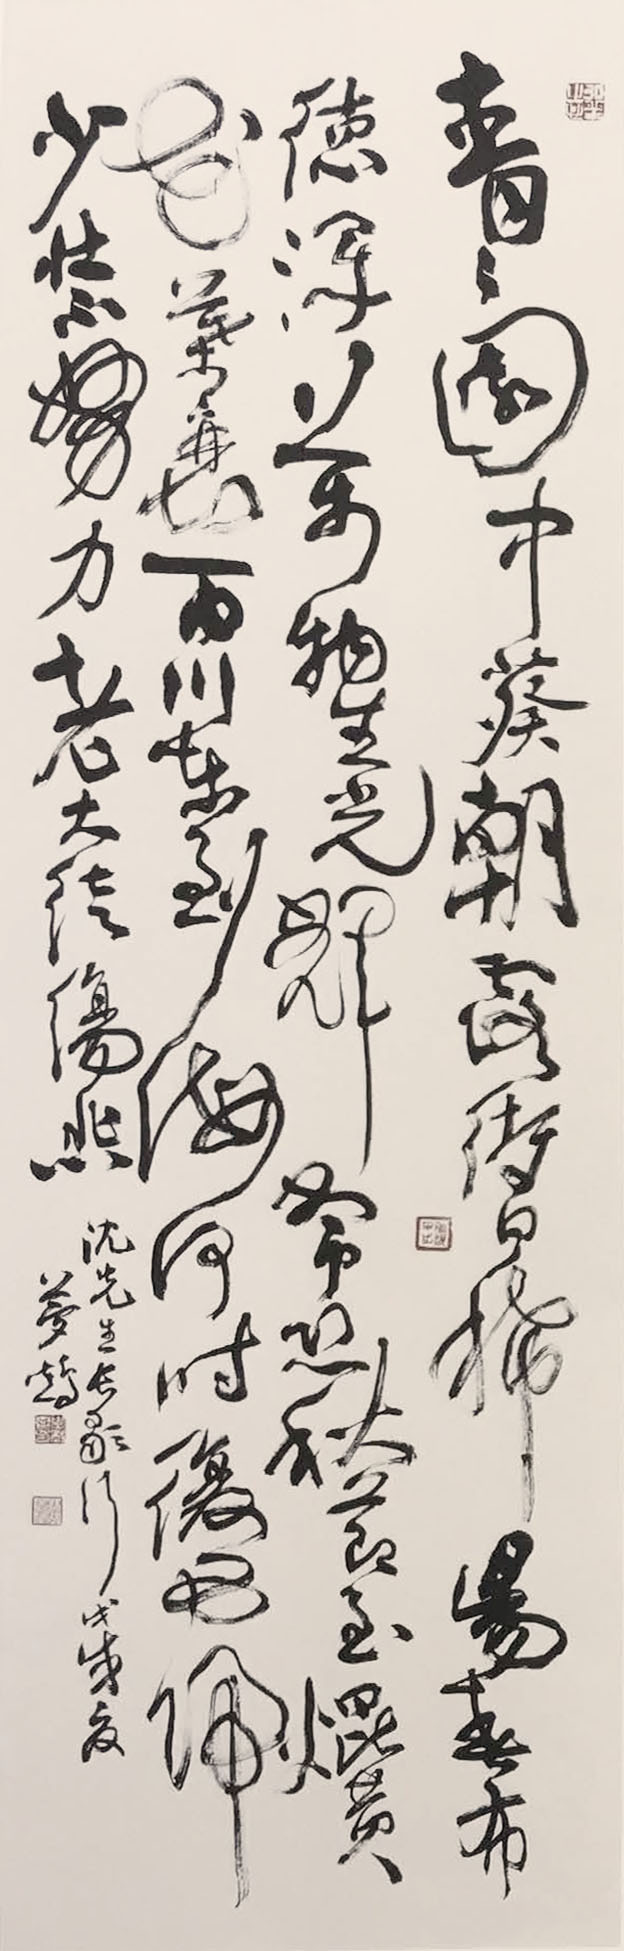 青々園中葵朝露待日晞陽春布
徳澤萬物生光輝常恐秋節至焜黃
花葉衰百川東到海何時復西歸
少壯不努力老大徒傷悲
沈先生長歌行 戊戌夏
夢